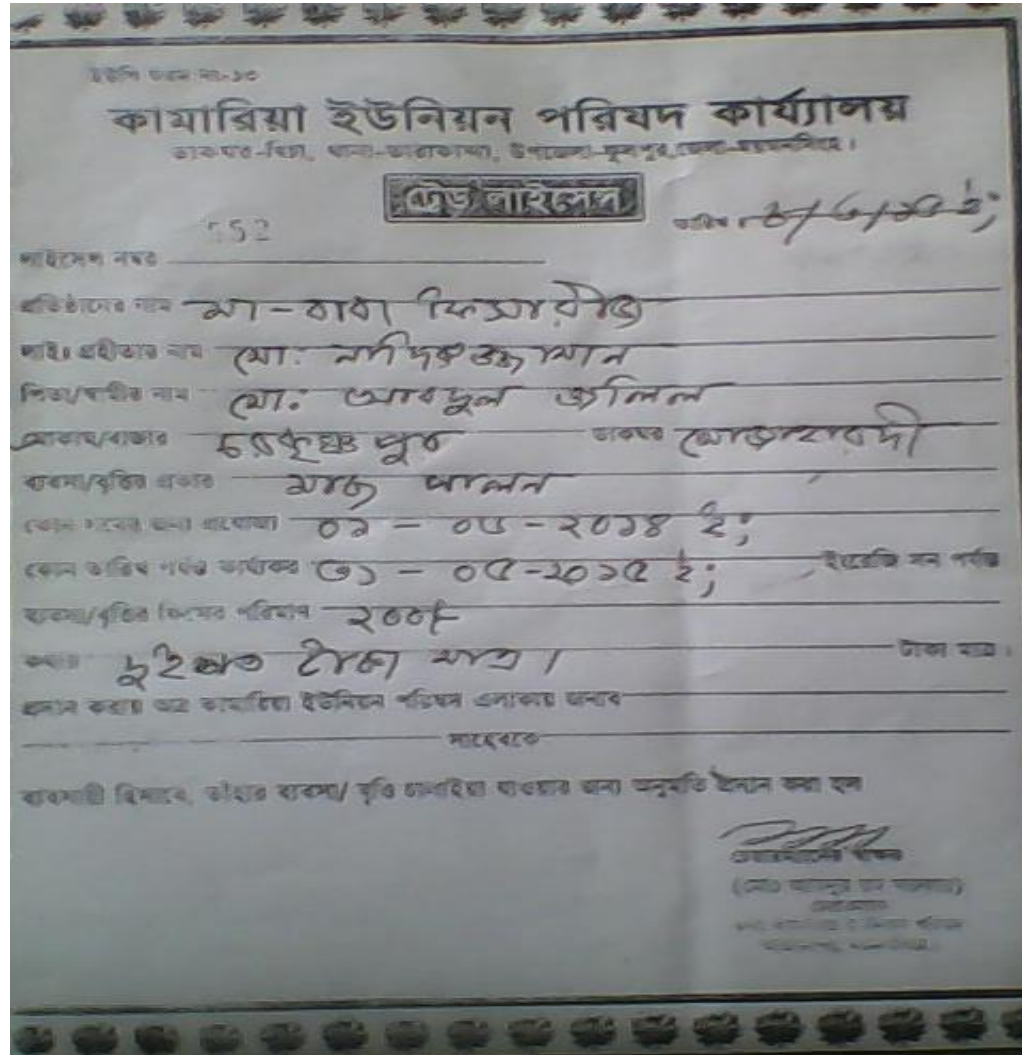 ইউপি ফরম নং-১০
কামারিয়া ইউনিয়ন পরিষদ কার্য্যালয়
ট্রেড লাইসেন্স
তারিখ
552
লাইসেন্স নম্বর
প্রতিষ্ঠানের নাম মা-বাবা ফিসারীজ
লাইঃ গ্রহীতার নাম মো: সাদিকুজ্জামান
পিতা/স্বামীর নাম মো: আবদুল জলিল
গ্রাম/বাজার চরকৃষ্ণপুর ডাকঘর
ব্যবসা/বৃত্তির প্রকার মাছ পালন
কোন সনের জন্য প্রযোজ্য ০১ - ০৬ - ২০১৪ ইং
কোন তারিখ পর্যন্ত কার্যকর ৩১ - ০৫-২০১৫ ইং ইংরেজি সন পর্যন্ত
ব্যবসা/বৃত্তির ফিসের পরিমাণ ২০০/-
কথায় দুইশত টাকা মাত্র। টাকা মাত্র।
প্রদান করায় অত্র কামারিয়া ইউনিয়ন পরিষদ এলাকায় জনাব
সাহেবকে
ব্যবসায়ী হিসাবে, তাঁহার ব্যবসা/ বৃত্তি চালাইয়া যাওয়ার জন্য অনুমতি প্রদান করা হল
চেয়ারম্যানের স্বাক্ষর